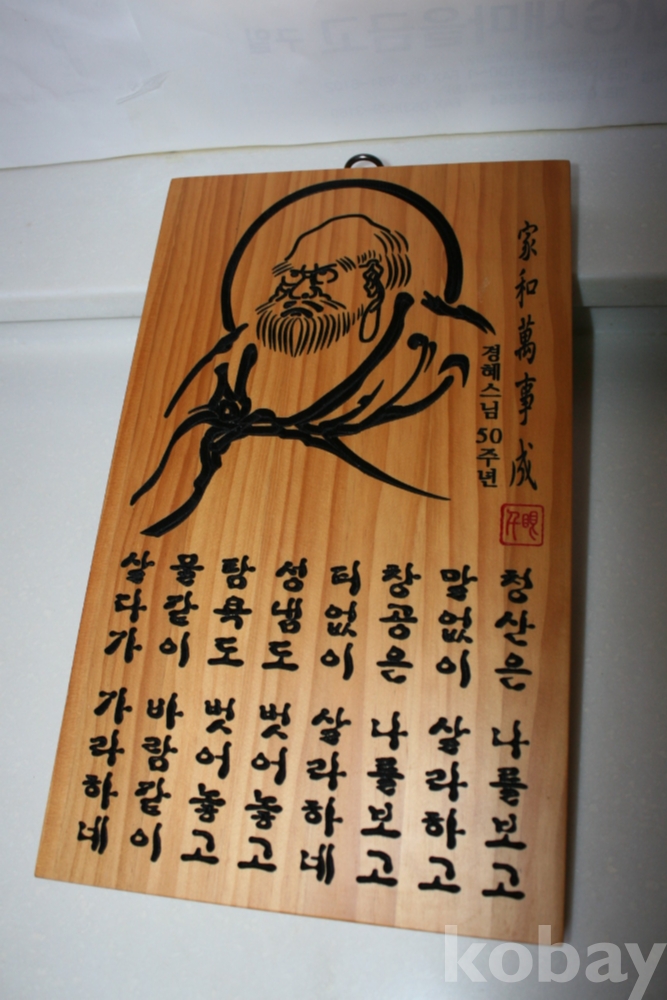 MG새마을금고
家和萬事成
경혜스님 50주년
청산은 나를보고
말없이 살라하고
창공은 나를보고
티없이 살라하네
성냄도 벗어놓고
탐욕도 벗어놓고
물같이 바람같이
살다가 가라하네
kobay